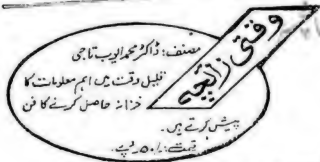 وقتی زائچہ
مصنف: ڈاکٹر محمد ایوب تاجی
قلیل وقت میں اہم معلومات کا
خزانہ حاصل کرنے کا فن
پیش کرتے ہیں۔
قیمت: ۵۰/ روپے